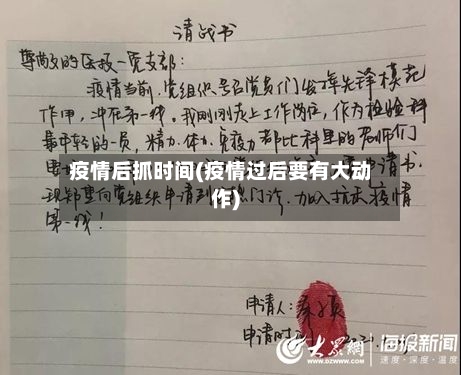 请战书
尊敬的医技一党支部：
疫情当前，党组织号召党员们发挥先锋模范
作用，冲在第一线。我刚刚走上工作岗位，作为检验科
最年轻的一员，精力、体力、免疫力都比科里的老师们
申请书，
疫情后抓时间(疫情过后要有大动
作)
现郑重向党组织申请到 热门诊，加入抗击疫情
第一线！
申请人：
申请时
大众网
海报新闻
速度·深度·温度